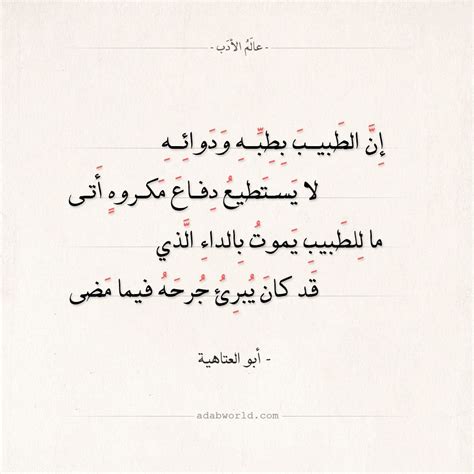 - عالَمُ الأدَب -
إِنَّ الطَبيبَ بِطِبِّهِ وَدَوائِهِ
لا يَستَطيعُ دِفاعَ مَكروهٍ أَتى
ما لِلطَبيبِ يَموتُ بِالداءِ الَّذي
قَد كانَ يُبرِئُ جُرحَهُ فيما مَضى
- أبو العتاهية
adabworld.com